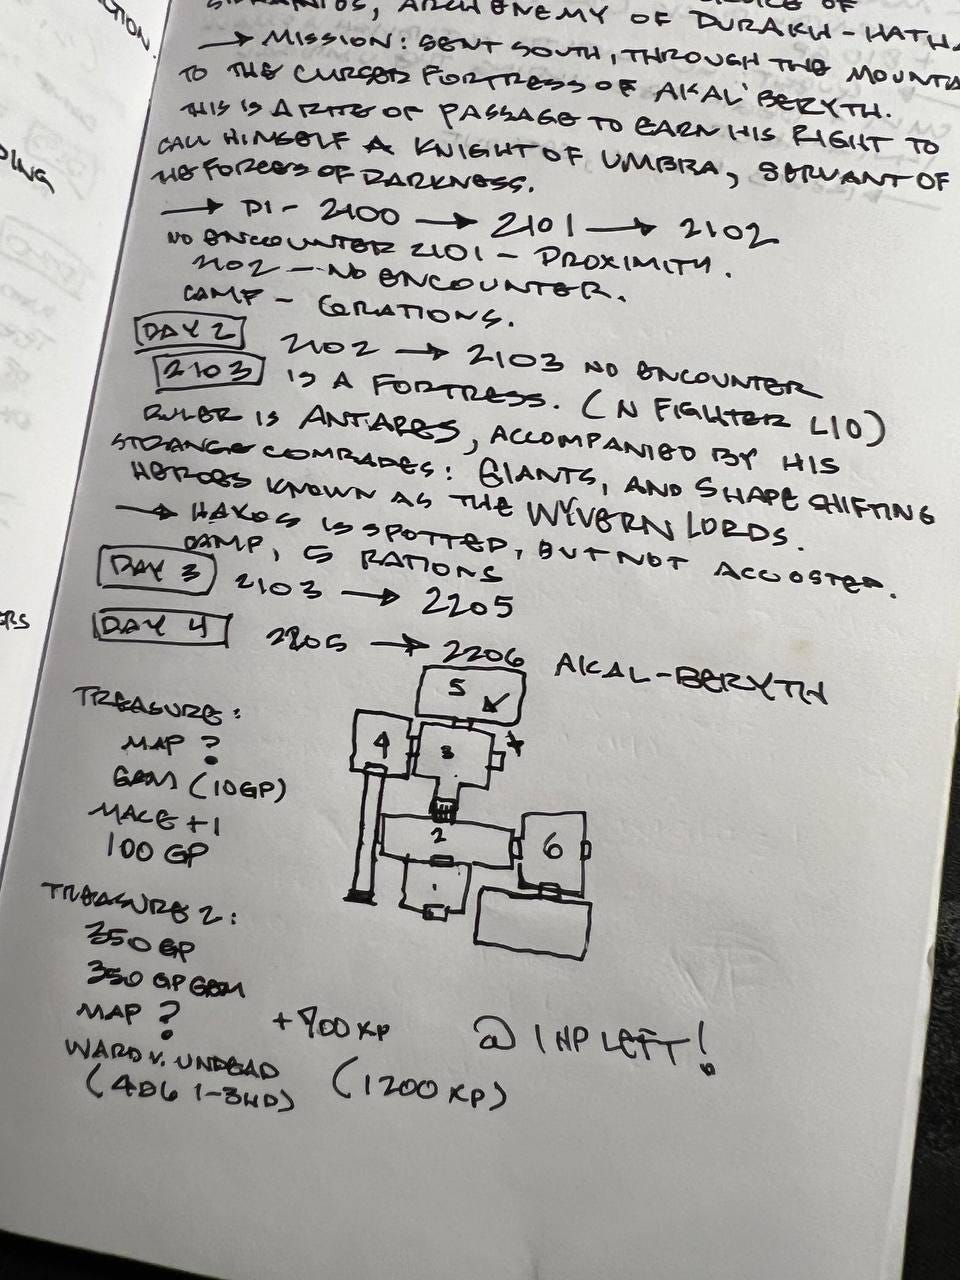 ARCH ENEMY OF DURAKH-HATH.
→ MISSION: SENT SOUTH, THROUGH THE MOUNTA
TO THE CURSED FORTRESS OF AKAL'BERYTH.
THIS IS A RITE OF PASSAGE TO EARN HIS RIGHT TO
CALL HIMSELF A KNIGHT OF UMBRA, SERVANT OF
THE FORCES OF DARKNESS.
→ D1 - 2100 → 2101 → 2102
NO ENCOUNTER 2101 - PROXIMITY.
2102 - NO ENCOUNTER.
CAMP - 6 RATIONS.
DAY 2 2102 → 2103 NO ENCOUNTER
2103 IS A FORTRESS. (N FIGHTER L10)
RULER IS ANTARES, ACCOMPANIED BY HIS
STRANGE COMRADES: GIANTS, AND SHAPE SHIFTING
HEROES KNOWN AS THE WYVERN LORDS.
→ IS SPOTTED, BUT NOT ACCOSTED.
CAMP, 5 RATIONS
DAY 3 2103 → 2205
DAY 4 2205 → 2206 AKAL-BERYTH
5
4
3
2
6
1
TREASURE:
MAP ?
GEM (10GP)
MACE +1
100 GP
TREASURE 2:
350 GP
350 GP GEM
MAP ?
WARD V. UNDEAD
(4D6 1-3HD)
+900 XP
(1200 XP)
@ 1 HP LEFT!